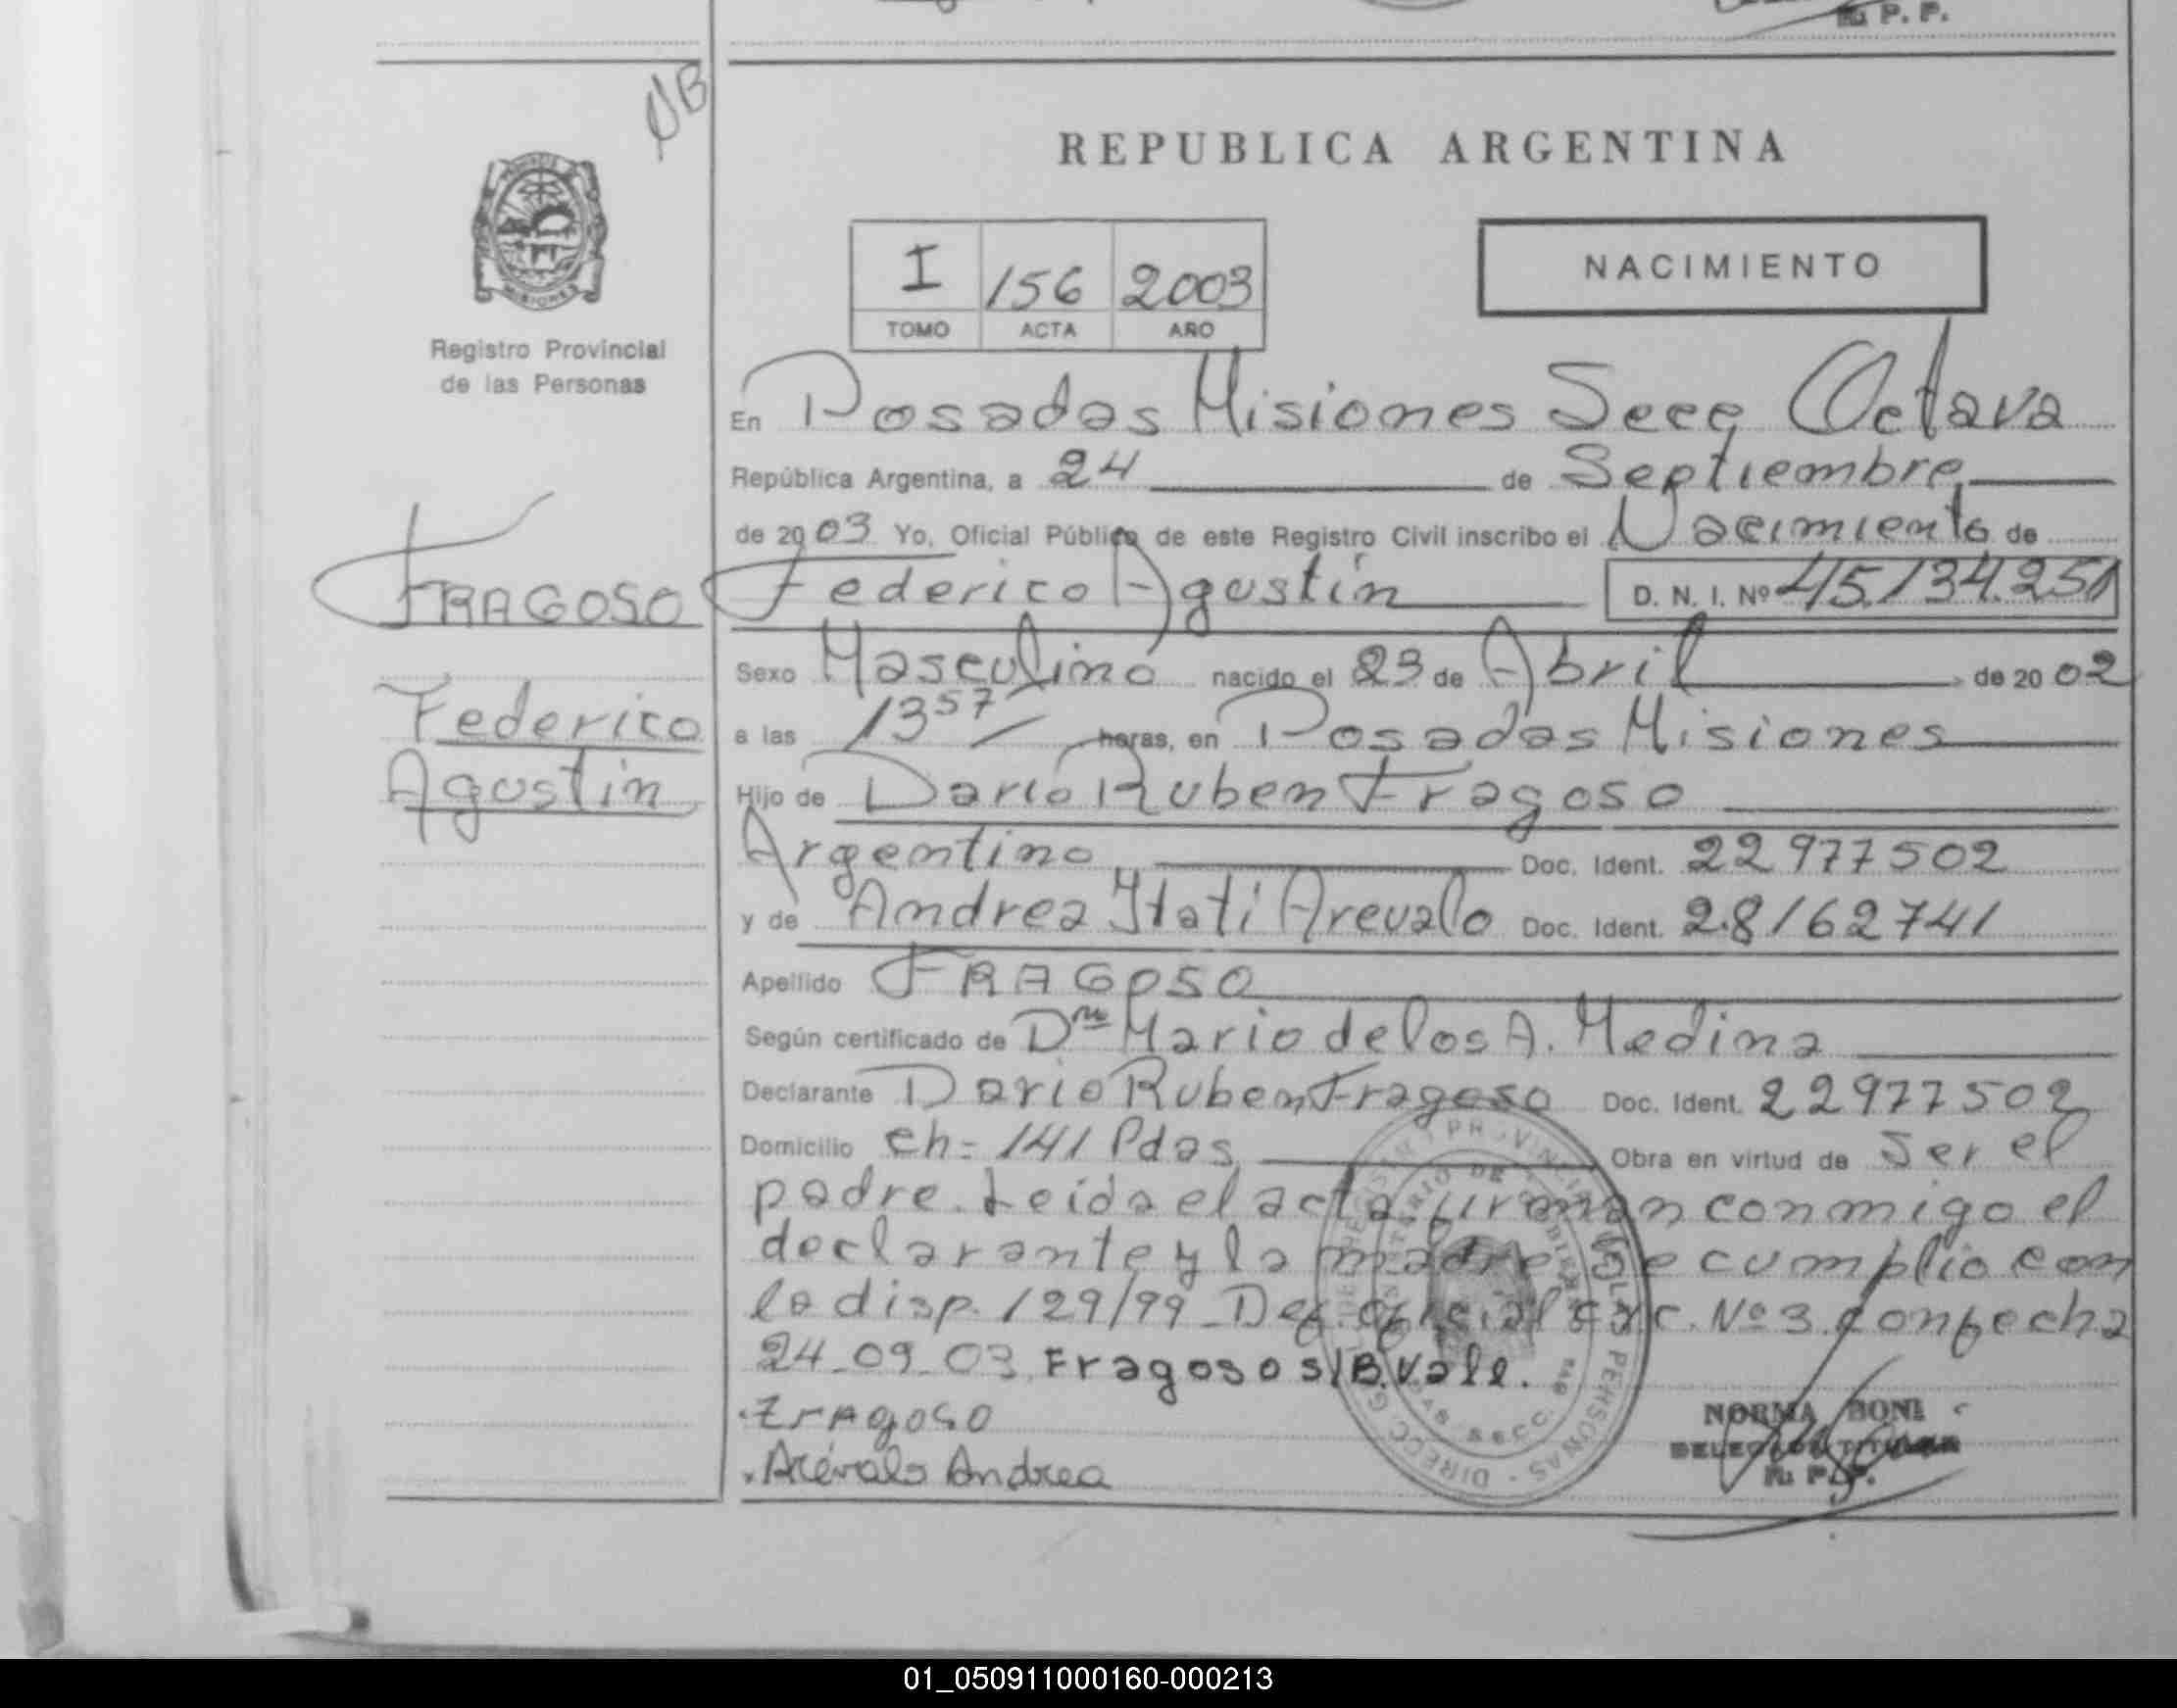 R. P. P.
NB
REPUBLICA ARGENTINA
PROVINCIA DE
MISIONES
Registro Provincial
de las Personas
I 156 2003
TOMO ACTA AÑO
NACIMIENTO
En Posadas Misiones Secc Octava
República Argentina, a 24 de Septiembre
de 2003 Yo, Oficial Público de este Registro Civil inscribo el Nacimiento de
FRAGOSO
Federico Agustín D. N. I. Nº 45.134.251
Sexo Masculino nacido el 23 de Abril de 2002
Federico
Agustin
a las 13 57 horas, en Posadas Misiones
Hijo de Dario Ruben Fragoso
Argentino Doc. Ident. 22977502
y de Andrea Itati Arevalo Doc. Ident. 28162741
Apellido FRAGOSO
Según certificado de Dra Mario de los A. Medina
Declarante Dario Ruben Fragoso Doc. Ident. 22977502
Domicilio Ch= 141 Pdas Obra en virtud de Ser el
padre. Leida el acta firman conmigo el
declarante y la madre Se cumplio con
la disp. 129/99 - Def. oficial C y C. Nº 3. con fecha
24-09-03. Fragoso S/B. Vale.
Fragoso
Arévalo Andrea
NORMA BONI
DELEGADA TITULAR
R. P. P.
01_050911000160-000213